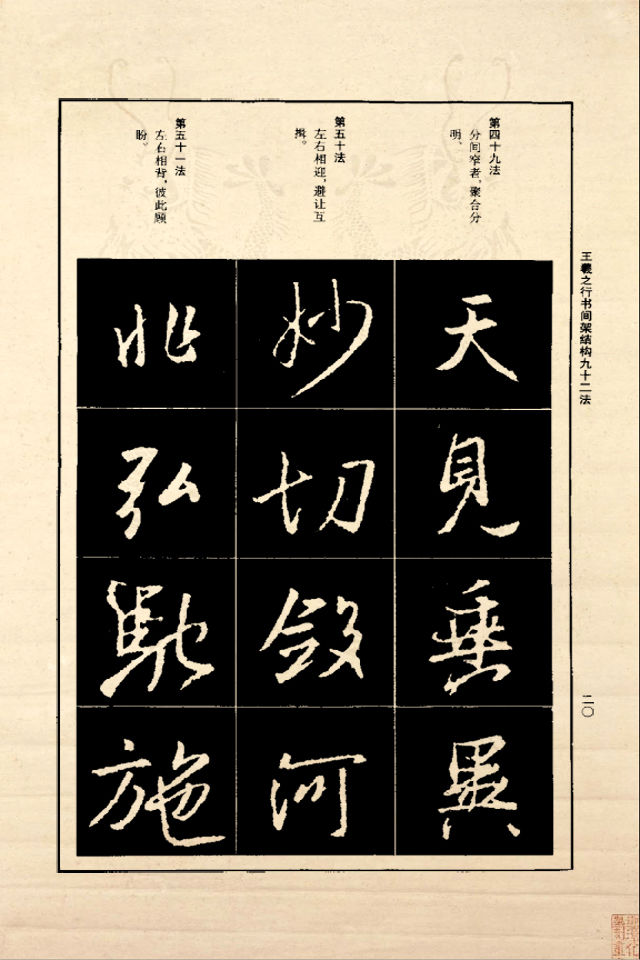 王羲之行书间架结构九十二法
第四十九法
分间窄者，聚合分
明、
天
見
垂
異
第五十法
左右相迎，避让互
揖。
妙
切
斂
河
第五十一法
左右相背，彼此顾
盼。
兆
弘
馳
施
二〇